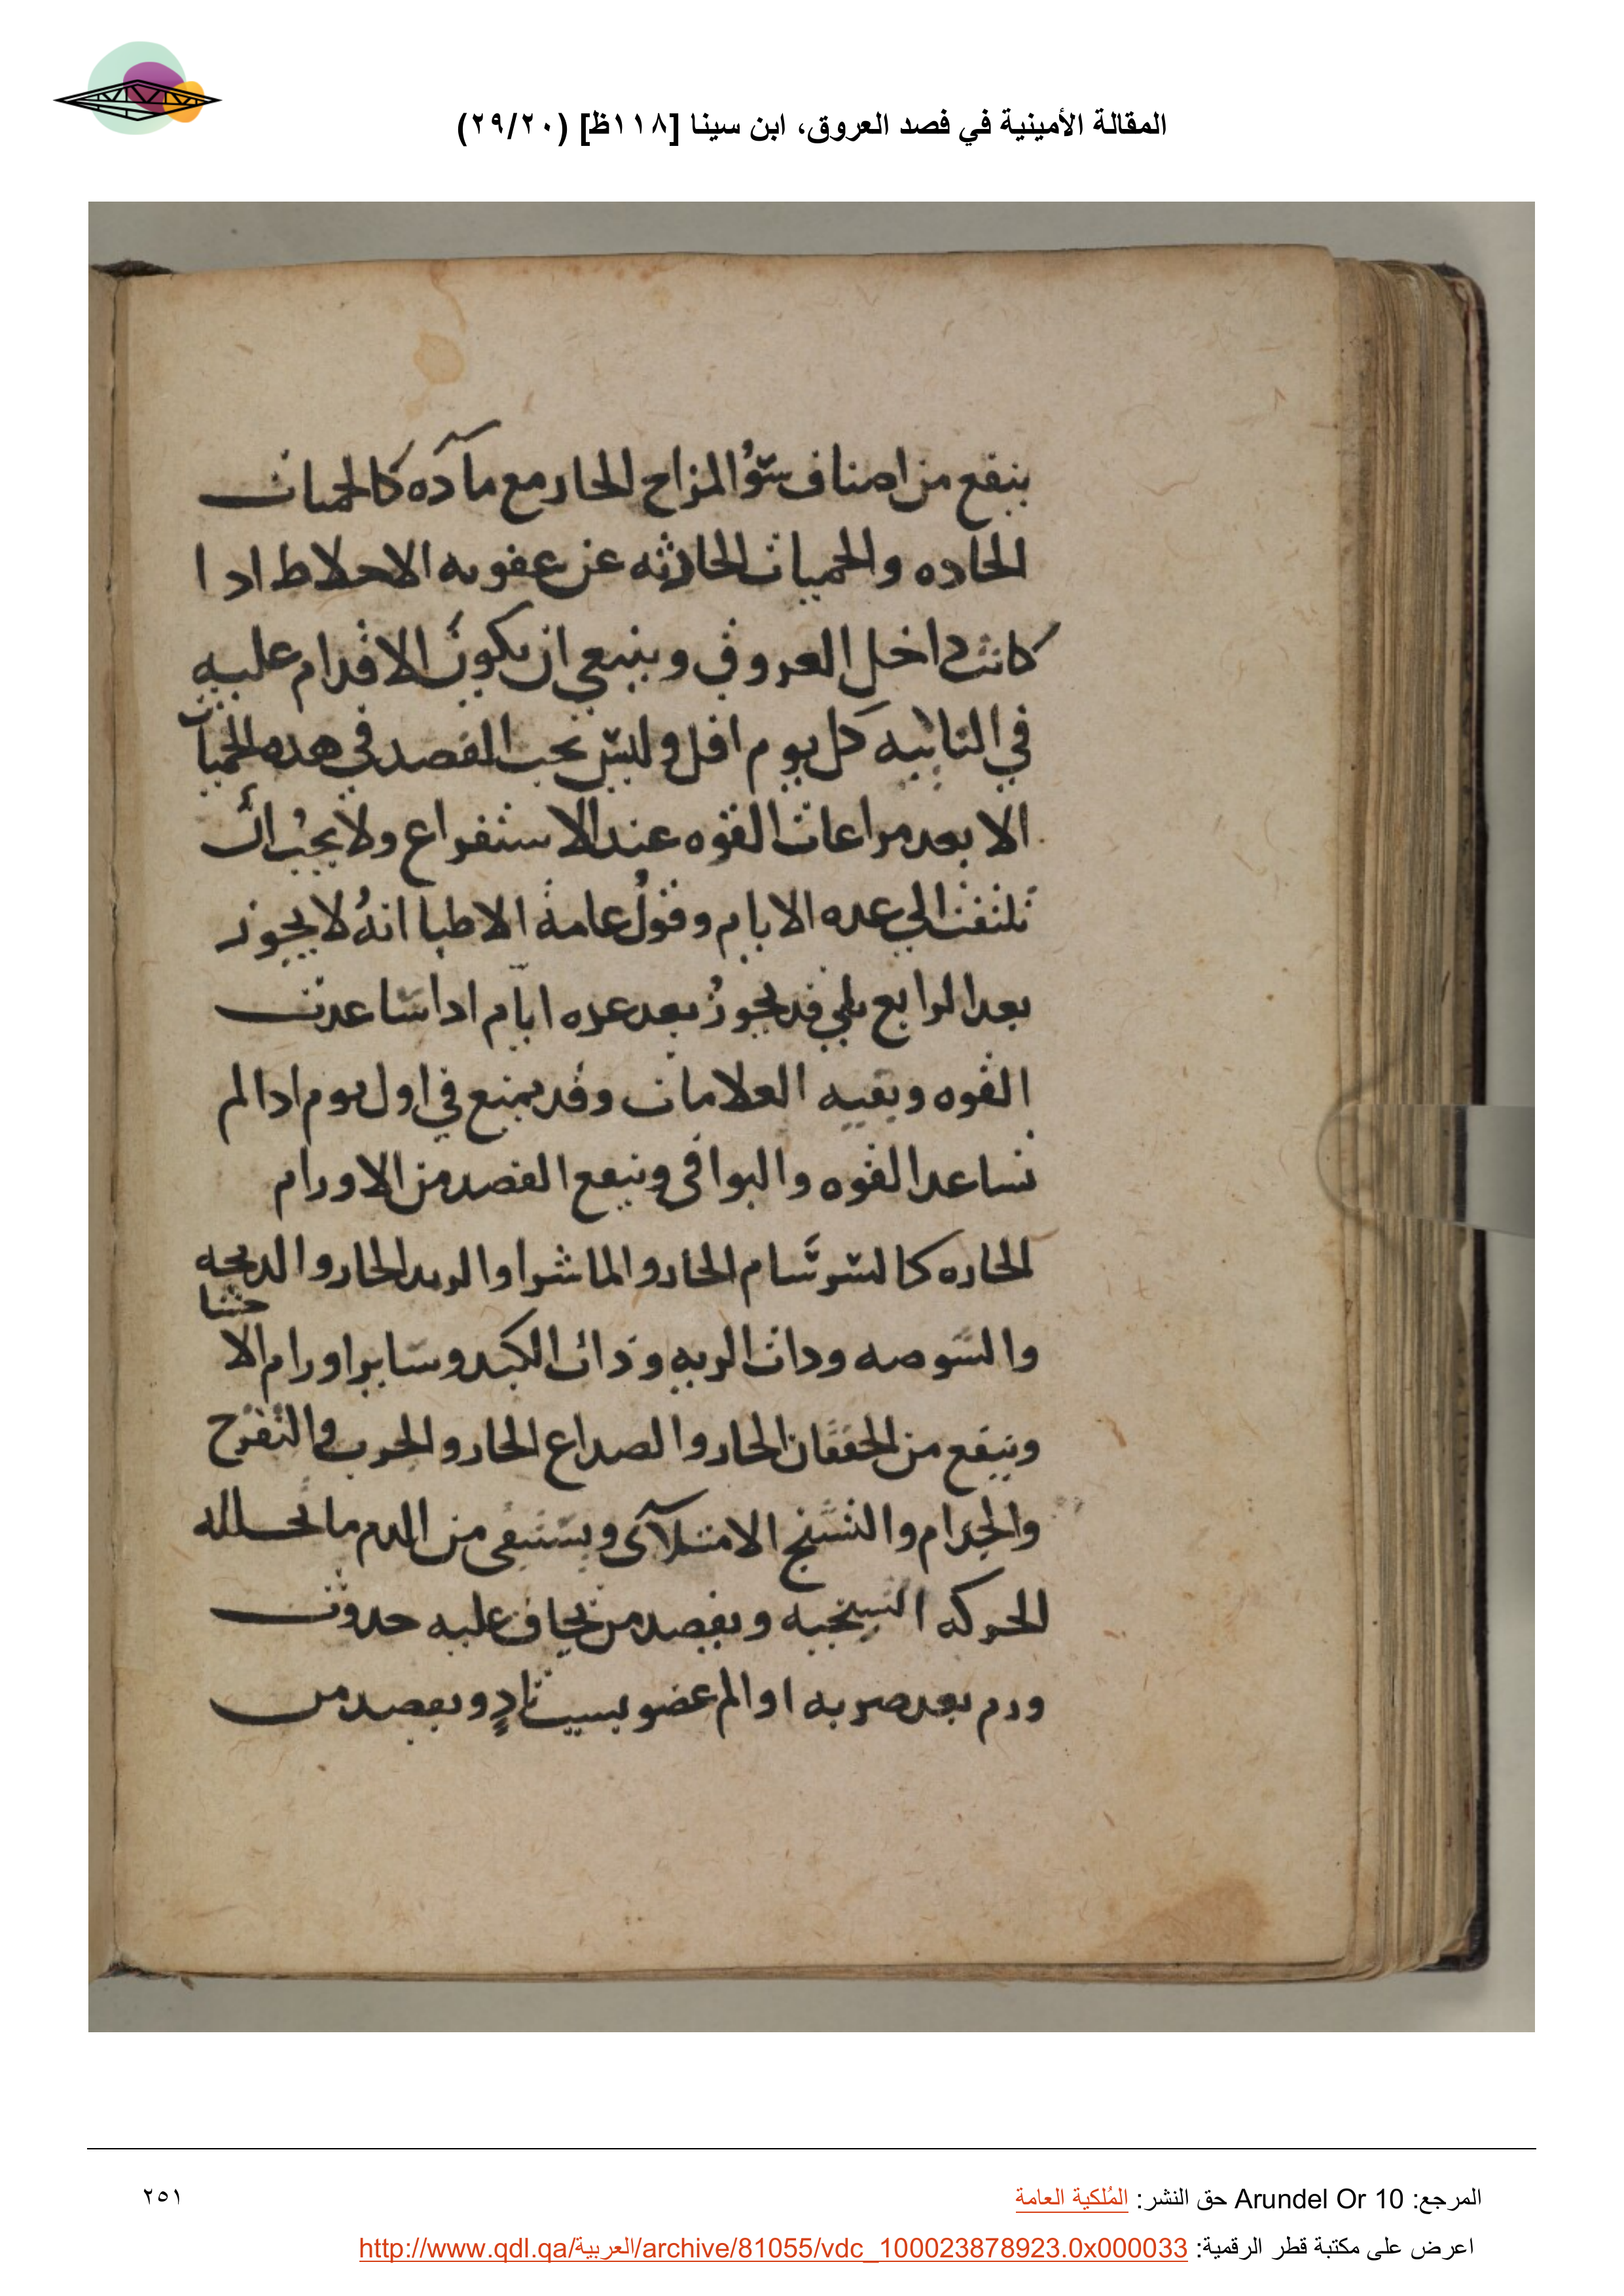 المقالة الأمينية في فصد العروق، ابن سينا [١١٨ظ] (٢٩/٢٠)
ينفع من اصناف سوُ المزاج الحار مع مآده كالحميات
الحاده والحميات الحادثه عن عفونه الاخلاط اذا
كانت داخل العروق وينبغي ان يكون الاقدام عليه
في الثانيه كل يوم اقل وليس يجب الفصد في هذه الحميات
الا بعد مراعات القوه عند الاستفراغ ولا يجب ان
تلتفت الي عده الايام وقول عامة الاطبا انهُ لا يجوز
بعد الرابع بلي قد يجوز بعد عده ايام اذا ساعدت
القوه وبقيه العلامات وقد يمنع في اول يوم اذا لم
تساعد القوه والبواقي وينفع الفصد من الاورام
الحاره كالسرسام الحار والماشرا والرمد الحار والذبحه
والشوصه وذات الريه وذات الكبد وساير اورام الاحشا
وينفع من الخفقان الحار والصداع الحار والجرب والتقرح
والجذام والتشنج الامتلآى ويستبقى من الدم ما تحلله
الحركه التشنجيه ويفصد من يخاف عليه حدوث
ورم بعد ضربه او الم عضو بسبب بادٍ ويفصد من
المرجع: Arundel Or 10 حق النشر: المُلكية العامة
٢٥١
اعرض على مكتبة قطر الرقمية: http://www.qdl.qa/العربية/archive/81055/vdc_100023878923.0x000033